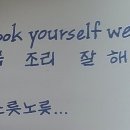 ook yourself we
조리 잘 해
노릇노릇...